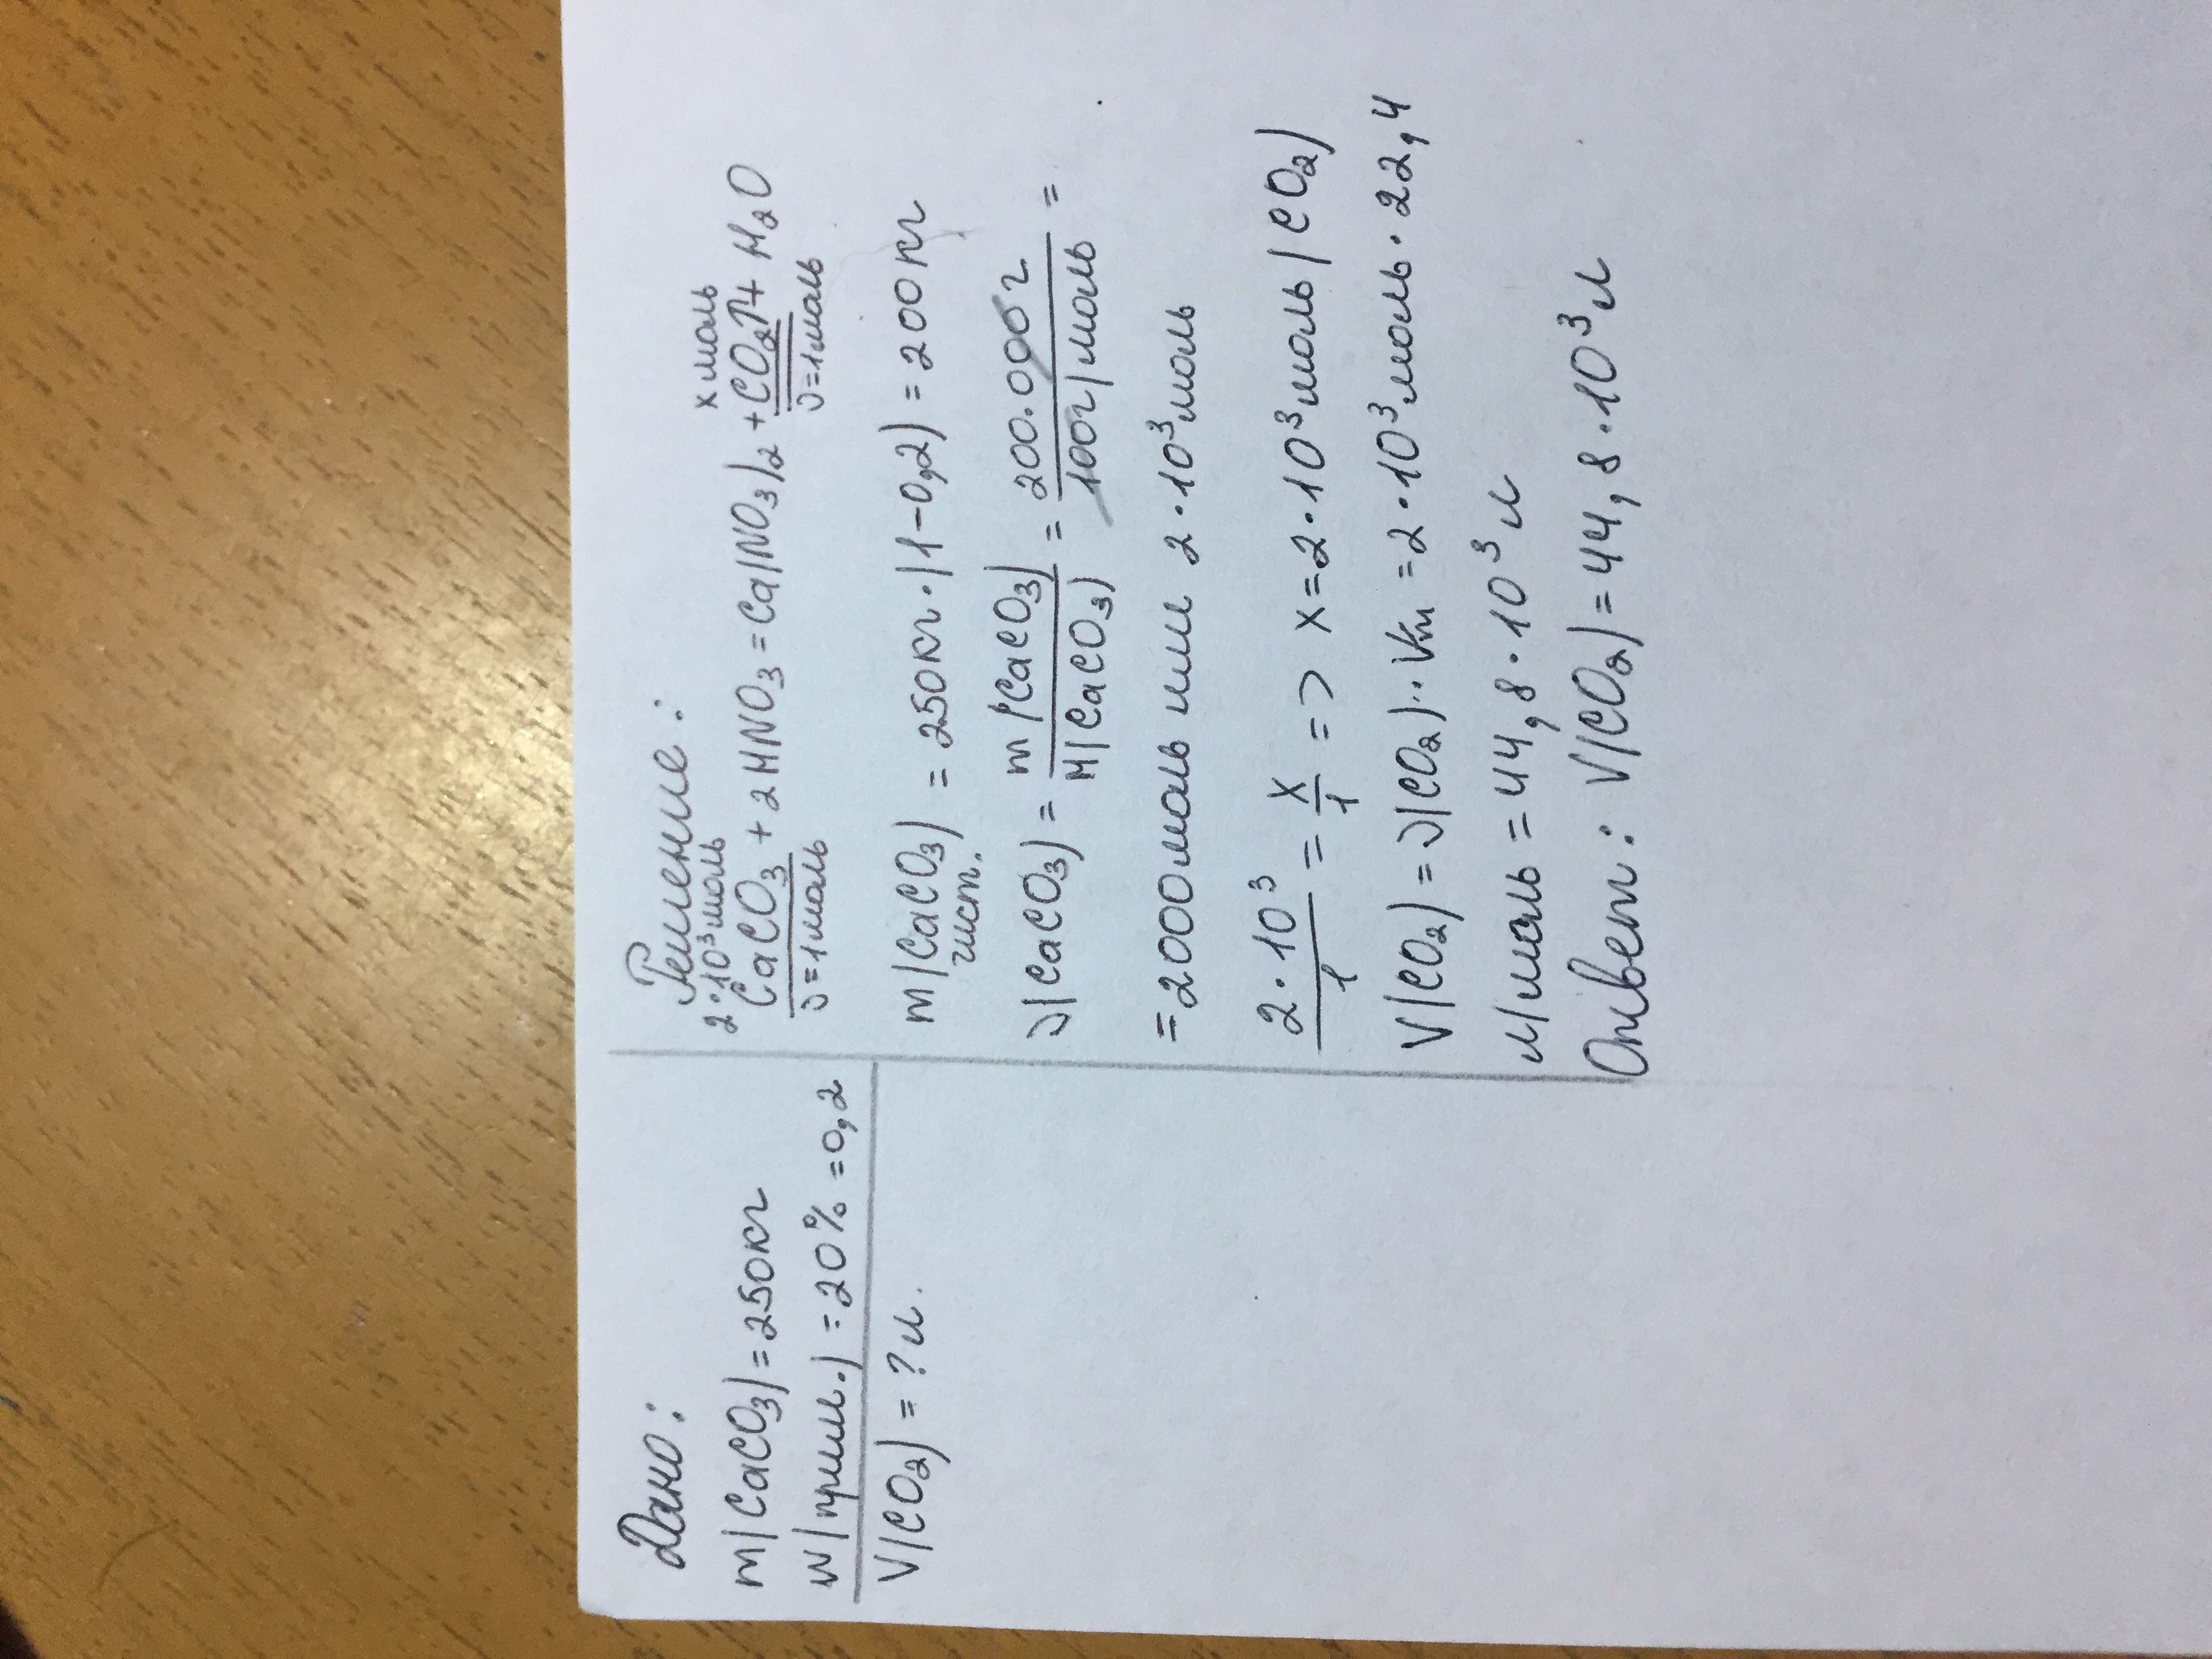 Дано:
m(CaCO₃) = 250кг
w(прим.) = 20% = 0,2
V(CO₂) = ? л.
Решение:
2·10³моль x моль
CaCO₃ + 2HNO₃ = Ca(NO₃)₂ + CO₂↑ + H₂O
ν=1моль ν=1моль
m(CaCO₃) = 250кг·(1-0,2) = 200кг
чист.
ν(CaCO₃) = m(CaCO₃)/M(CaCO₃) = 200.000г/100г/моль =
= 2000моль или 2·10³моль
2·10³/1 = x/1 => x=2·10³моль(CO₂)
V(CO₂) = ν(CO₂)·Vm = 2·10³моль·22,4
л/моль = 44,8·10³л
Ответ: V(CO₂) = 44,8·10³л